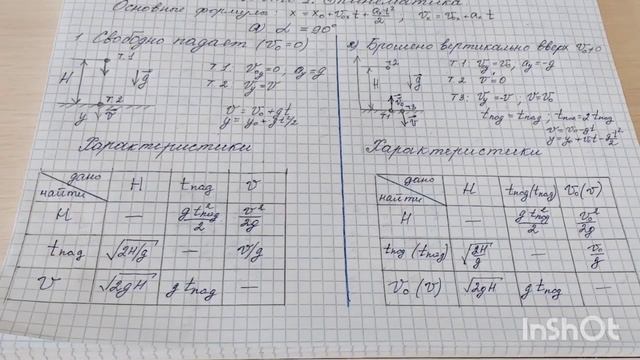 Кинематика
Основные формулы: x = x₀ + v₀ₓt + aₓt²/2, vₓ = v₀ₓ + aₓt
а) α = 90°
1. Свободно падает (v₀ = 0)
H
т.1
g
т.2
y
v
т.1 v₀y = 0, ay = g
т.2 vy = v
v = v₀ + gt
y = y₀ + gt²/2
Характеристики
дано
найти
H
tпад
v
H
—
gtпад²/2
v²/2g
tпад
√2H/g
—
v/g
v
√2gH
gtпад
—
Брошено вертикально вверх v₀ ≠ 0
т2
H
g
v₀
т.1
т3
v
т.1 v₀y = v₀, ay = -g
т.2 v = 0
т3: vy = -v; v = v₀
tпод = tпад; tпол = 2tпод
v = v₀ - gt
y = y₀ + v₀t - gt²/2
Характеристики
дано
найти
H
tпод (tпад)
v₀ (v)
H
—
gtпод²/2
v₀²/2g
tпод (tпад)
√2H/g
—
v₀/g
v₀ (v)
√2gH
gtпод
—
InShOt